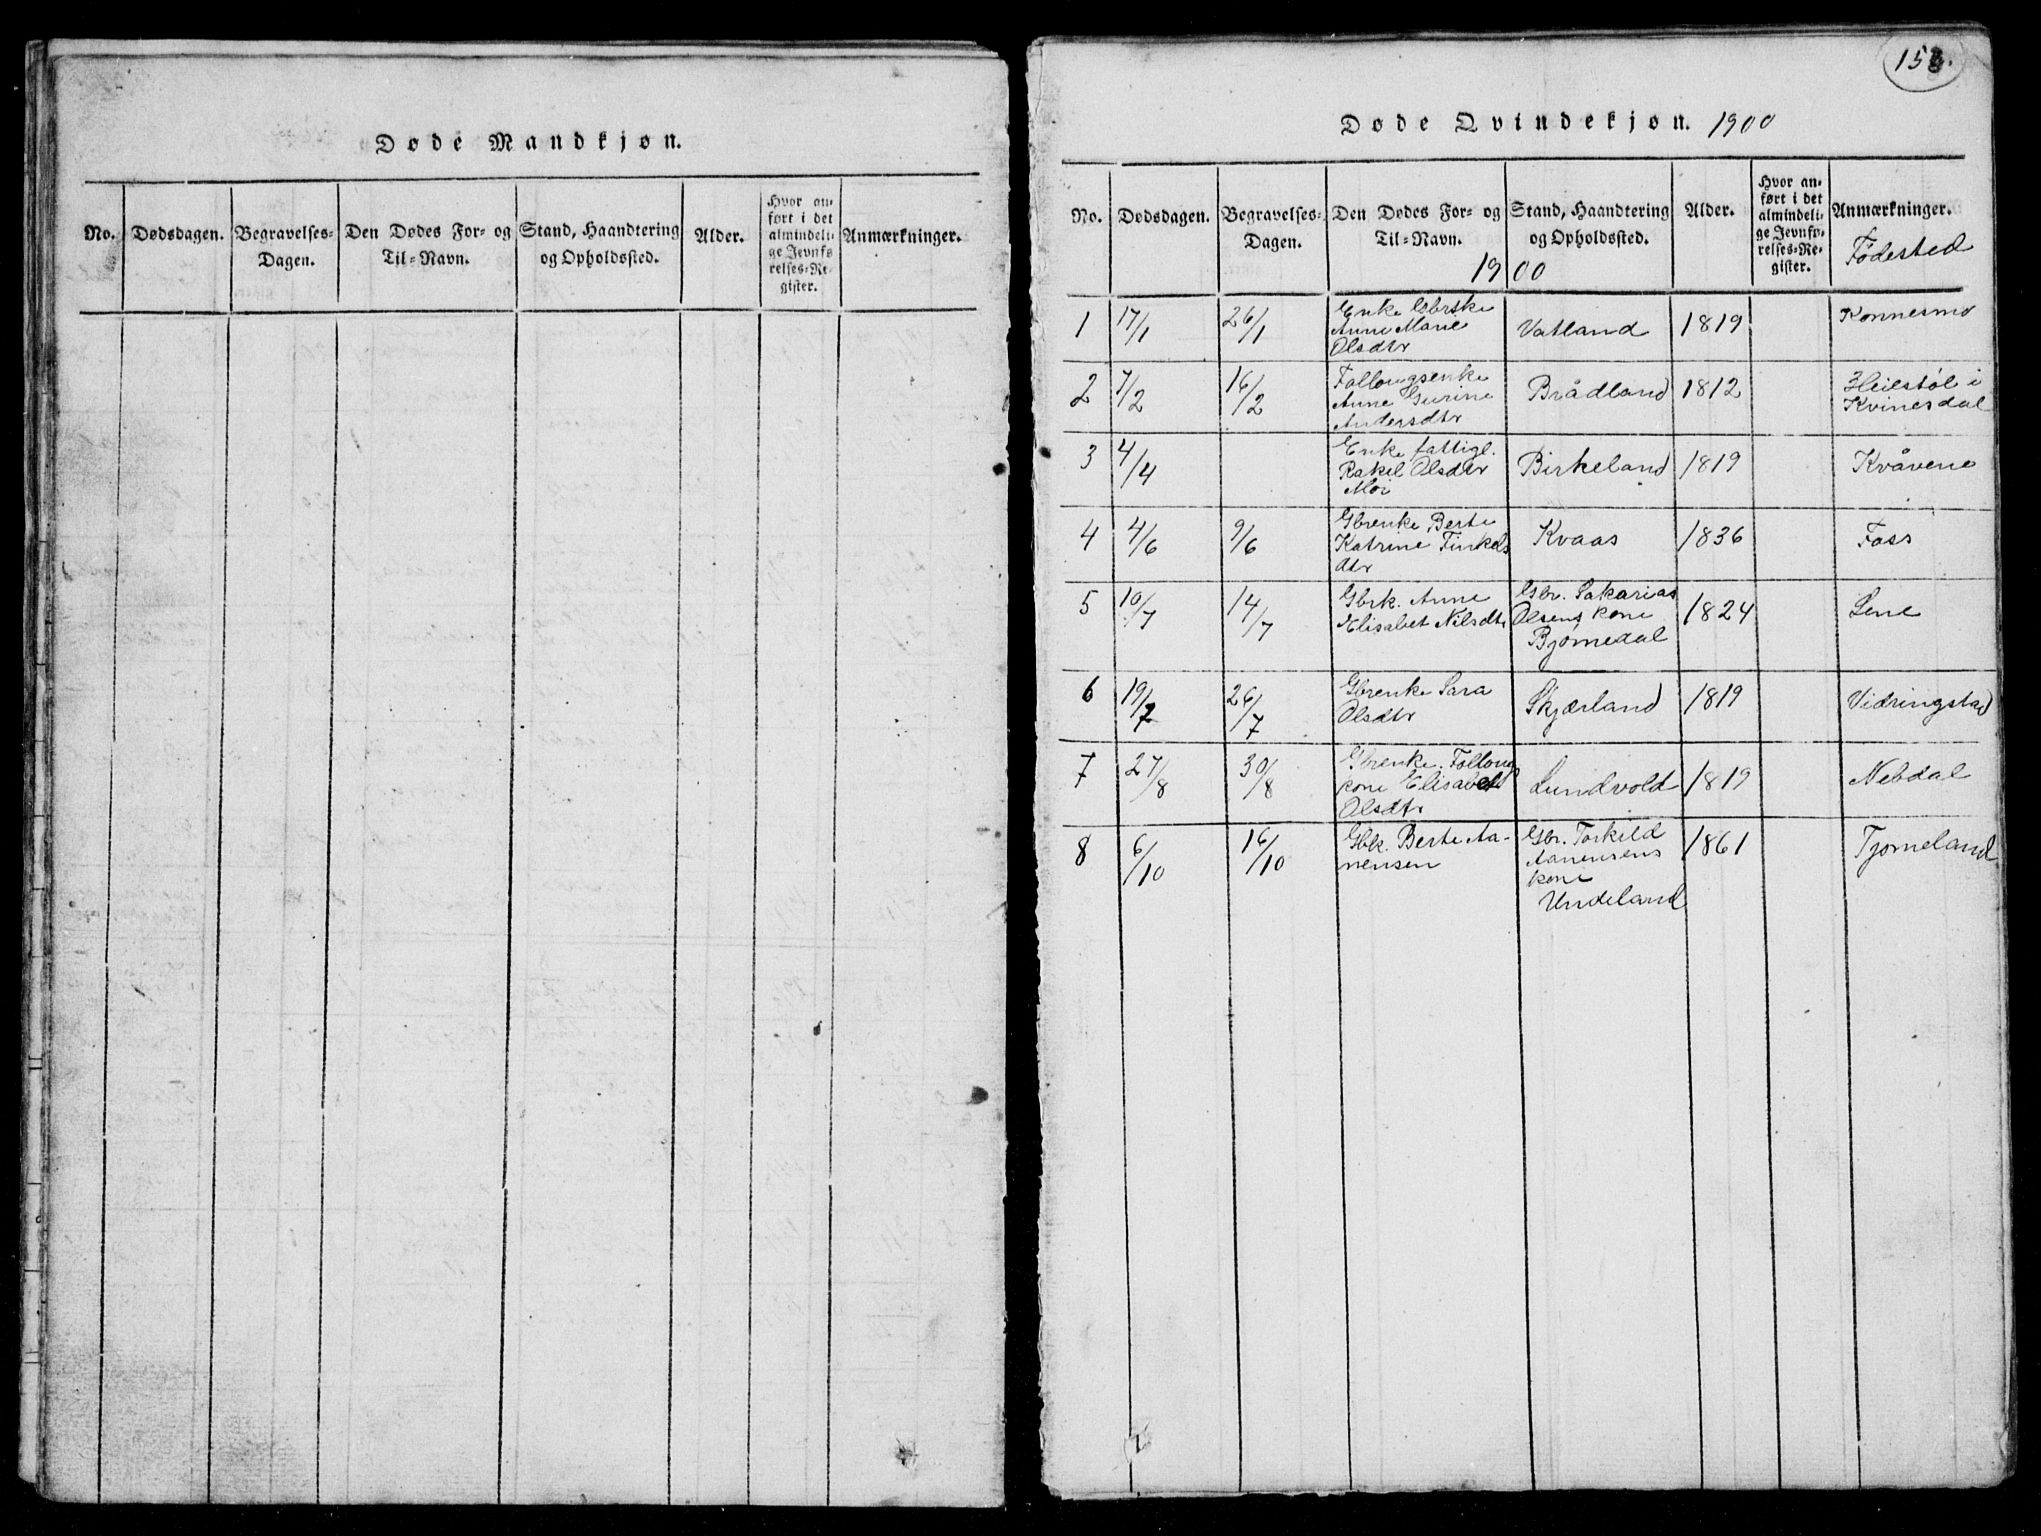 Døde Mandkjøn.
No.
Dødsdagen.
Begravelses-
Dagen.
Den Dødes For- og
Til-Navn.
Stand, Haandtering
og Opholdssted.
Alder.
Hvor an-
ført i det
almindeli-
ge Jevnfø-
relses-Re-
gister.
Anmærkninger.
Døde Qvindekjøn. 1900
No.
Dødsdagen.
Begravelses-
Dagen.
Den Dødes For- og
Til-Navn.
Stand, Haandtering
og Opholdssted.
Alder.
Hvor an-
ført i det
almindeli-
ge Jevnfø-
relses-Re-
gister.
Anmærkninger.
Fødested
1900
1
17/1
26/1
Enke
Anne Marie
Olsdtr
Vatland
1819
Konnesmo
2
7/2
16/2
Follougsenke
Anne Gurine
Andersdtr
Brådland
1812
Heiestøl i
Kvinesdal
3
4/4
Enke fattigl.
Rakel Olsdtr
Moi
Birkeland
1819
Kvåvene
4
4/6
9/6
Gbrenke Berte
Katrine Finkels
dtr
Kvaas
1836
Foss
5
10/7
14/7
Gbrk. Anne
Elisabet Nilsdtr
Gbr. Sakarias
Olsens kone
Bjørnedal
1824
Lene
6
19/7
26/7
Gbrenke Sara
Olsdtr
Skjærland
1819
Vidringstad
7
27/8
30/8
Gbrenke. Folloug
kone Elisabet
Olsdtr
Lundvold
1819
Nebdal
8
6/10
16/10
Gbk. Berte Aa-
nensen
Gbr. Torkild
Aanensens
kone
Undeland
1861
Tjomeland